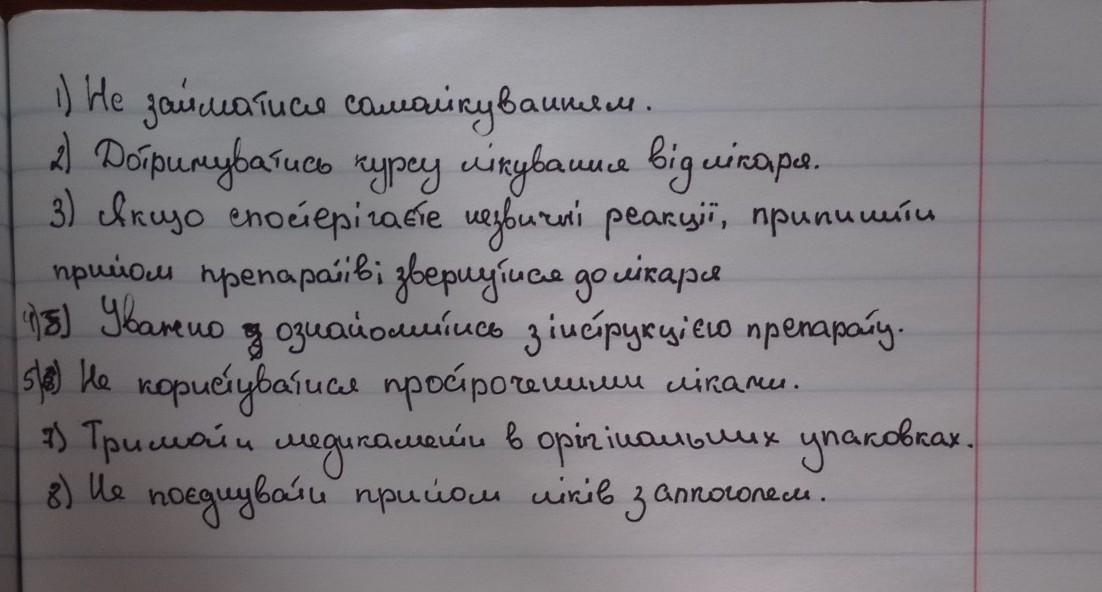 1) Не займатися самолікуванням.
2) Дотримуватись курсу лікування від лікаря.
3) Якщо спостерігаєте незвичні реакції, припинити
прийом препаратів і звернутися до лікаря
4) Уважно ознайомтись з інструкцією препарату.
5) Не користуватися простроченими ліками.
7) Тримати медикаменти в орігінальних упаковках.
8) Не поєднувати прийом ліків з алкоголем.